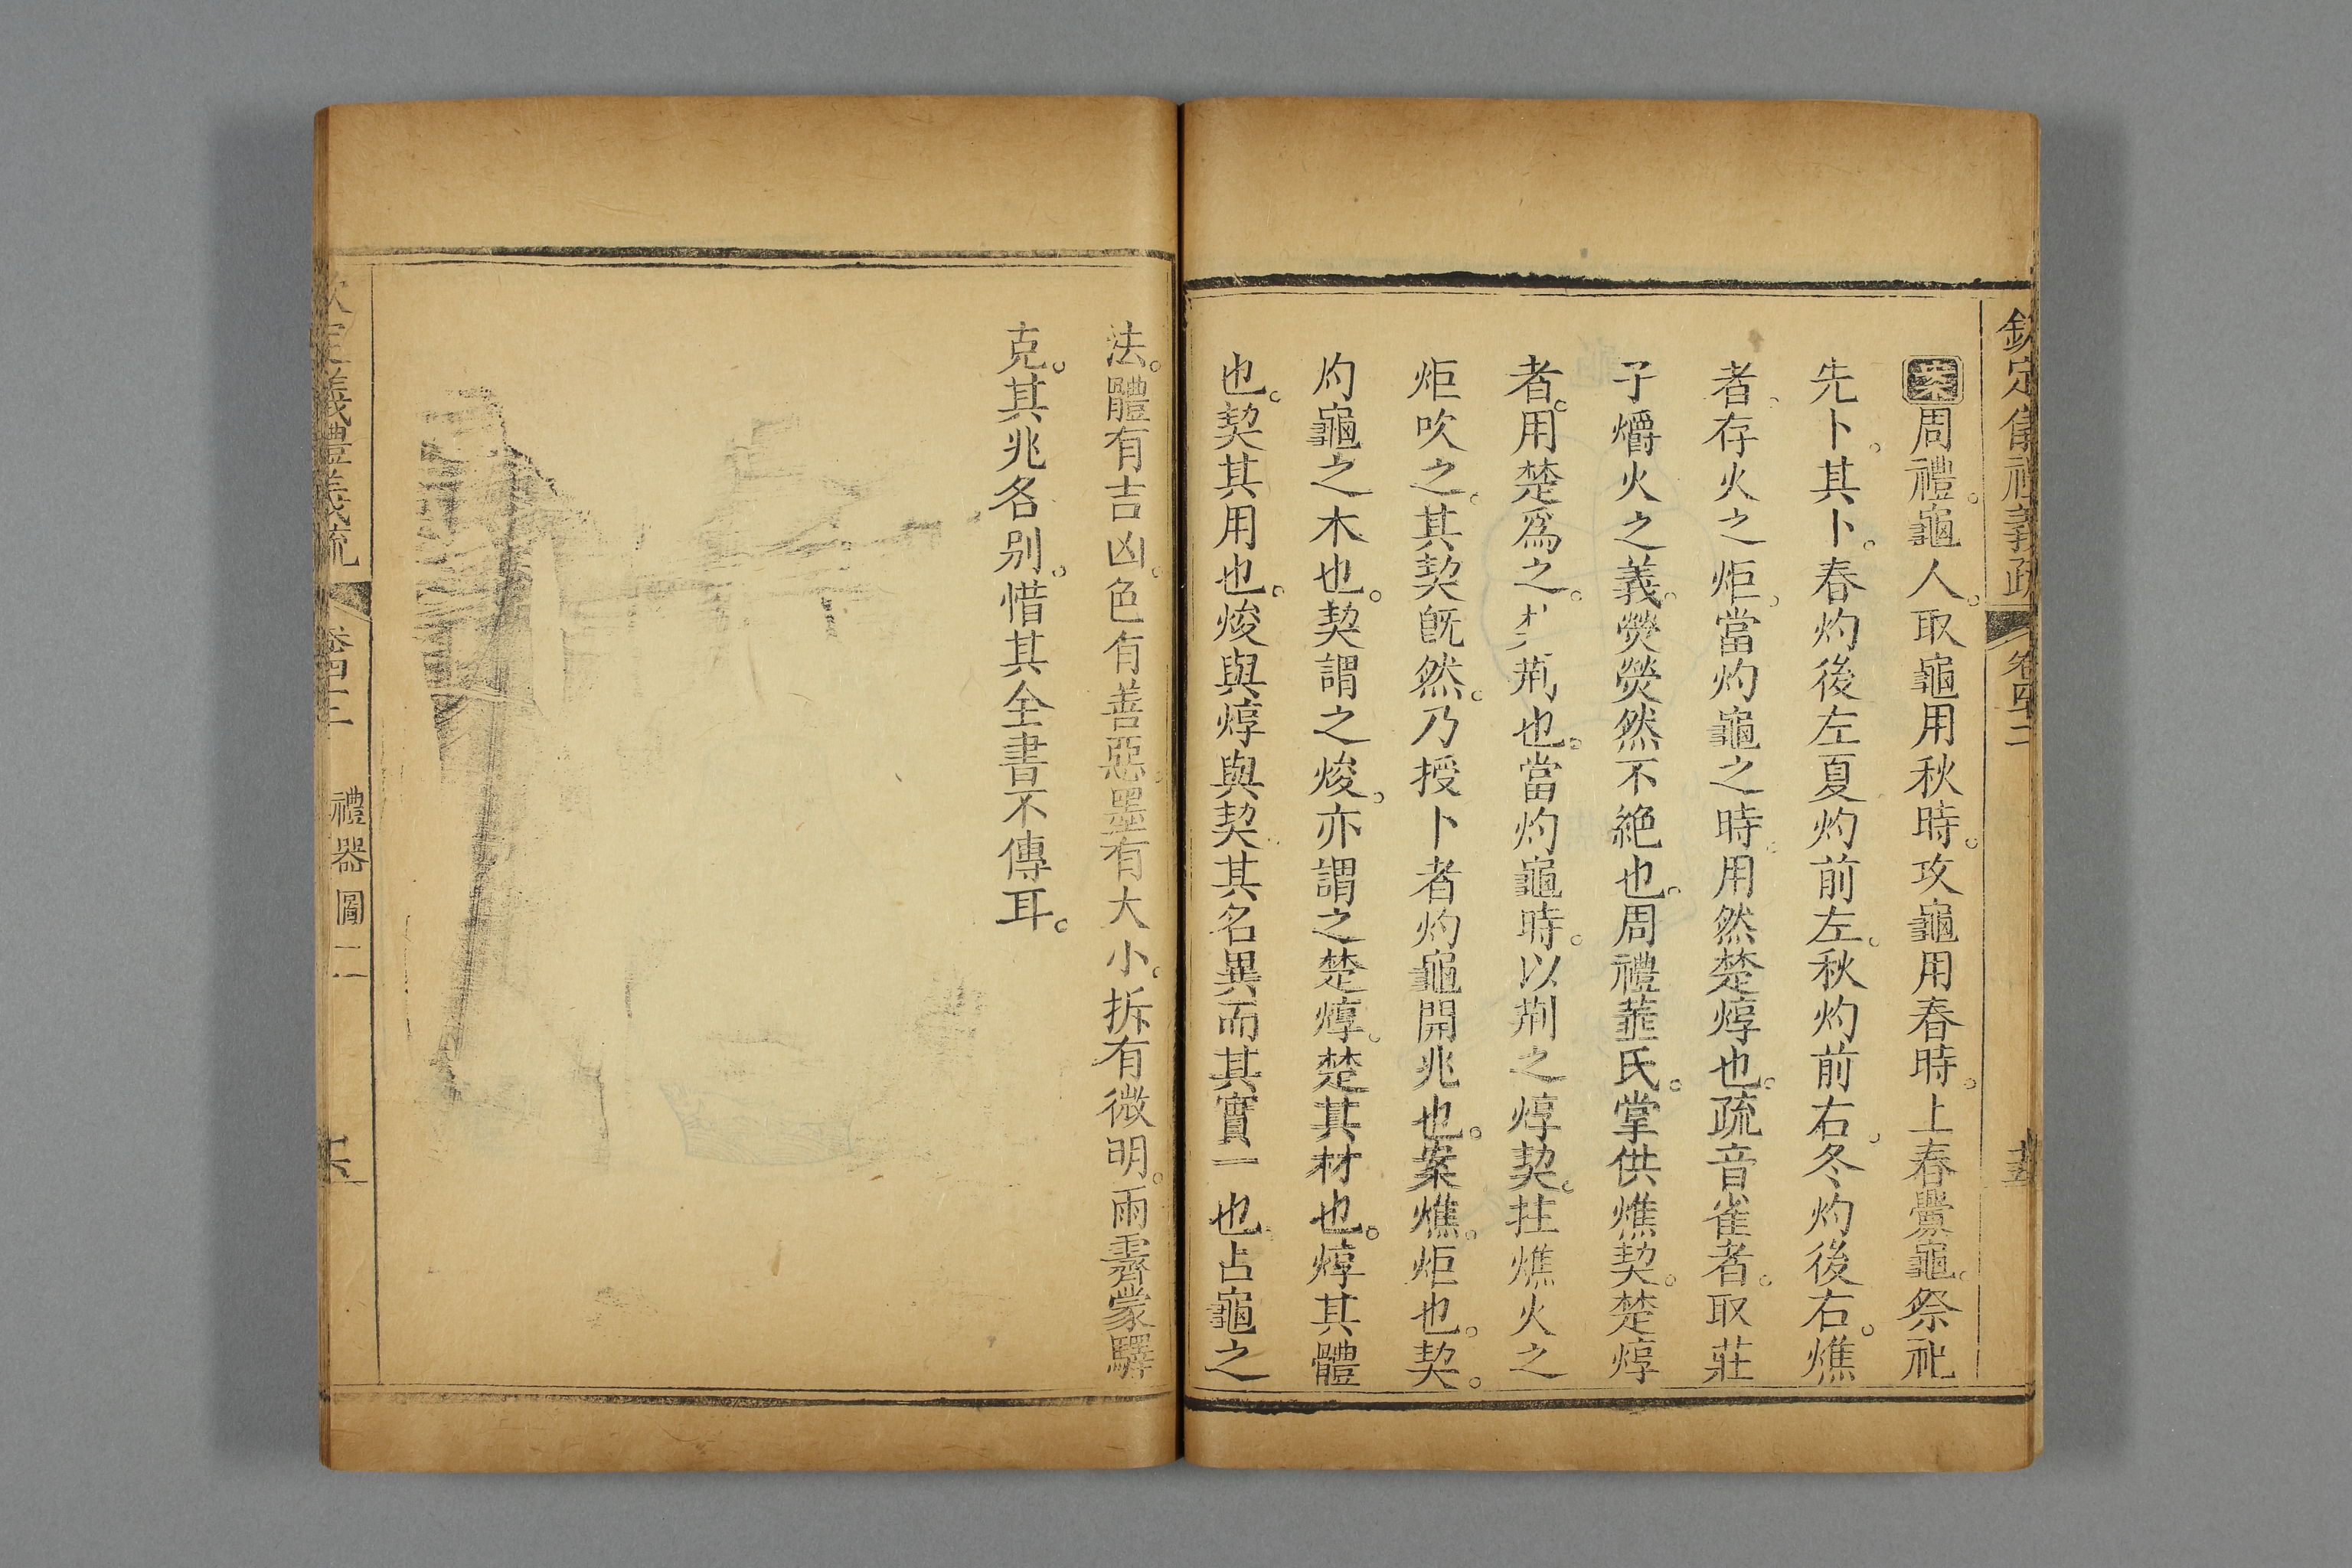 欽定儀禮義疏 卷四十二
案周禮。龜人。取龜用秋時。攻龜用春時。上春釁龜。祭祀
先卜。其卜。春灼後左夏灼前左。秋灼前右。冬灼後右。燋
者。存火之炬。當灼龜之時。用然楚焞也。疏音雀者。取莊
子爝火之義。熒熒然不絶也。周禮菙氏。掌供燋契。楚焞
者。用楚爲之。荆也。當灼龜時。以荆之焞契。拄燋火之
炬吹之。其契旣然。乃授卜者灼龜開兆也。案燋。炬也。契。
灼龜之木也。契謂之焌。亦謂之楚焞。楚其材也。焞其體
也。契其用也。焌與焞與契。其名異而其實一也。占龜之
法。體有吉凶。色有善惡。墨有大小。拆有微明。雨霽蒙驛
克。其兆各别。惜其全書不傳耳。
欽定儀禮義疏 卷四十二 禮器圖二